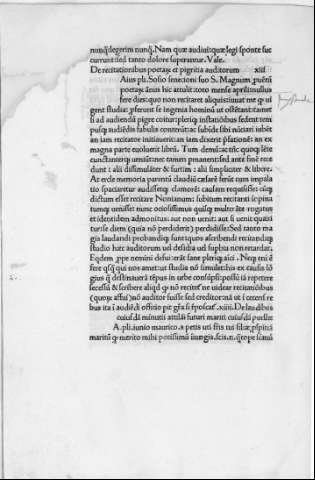 nunq̃ legerim nunq̃. Nam quæ audiui quæ legi sponte suc
currunt sed tanto dolore superantur. Vale.
De recitationibus poetaȝ et pigritia auditorum xiii
Aius pli. Sosio senecioni suo S. Magnum ꝓuētū
poetaȝ ānus hic attulit. toto mense aprili nullus
fere dies: quo non recitaret aliquis
studia: ꝓferunt se ingenia hominū ut ostētant: tametsi
ad audiendū pigre coitur: pleriq; instatiōibus sedent tem
pusq; audiēdis fabulis conterūt: ac subīde sibi nūciari iubēt
an iam recitator initrauerit: an iam dixerit p̃fationē: an ex
magna parte euoluerit librū. Tum demū: ac tūc quoq; lēte
cunctanterq; ueniūt: nec tamen ꝑmanent: sed ante finē rece
dunt: alii dissimulāter & furtim: alii simpliciter & libere.
At ercle memoria parentū claudiū cæsarē ferūt cum in pala
tio spaciaretur audissetq; clamorē: causam requisisse: cūq;
dictum esset recitare Nonianum: subitum recitanti
tumq; uenisse: nunc ociosissimus quisq; multo āte rogatus
et identidem admonitus: aut non uenit: aut si uenit queri
tur se diem (quia nō perdiderit) perdidisse: Sed tanto ma
gis laudandi probandiq; sunt quos a scribendi recitandiq;
studio hæc auditorum uel desidia uel suꝑbia non retardat.
Eqdem ꝓpe nemini defui: erāt sane pleriq; aīci. Neq; enī ē
fere qsq̃ qui nos amet: ut studia nō simul: his ex causis lō
gius q̃ destinauerā tēpus in urbe consūpsi: possū iā repetere
secessū & scribere aliqd qd nō recitē: ne uidear recitatiōibus
(quoȝ affui) nō auditor fuisse sed creditor: nā ut ī ceteris re
bus ita ī audiēdi officio pit grā si reposcat. xiiii. De laudibus
cuiusdā minutii attulit futuri mariti cuiusdā puellæ
A. pli. iunio maurico. s. petis uti fr̄is tui filiæ, ꝓspiciā
maritū qd merito mihi potissimū iniungis. scis. n. q̄tope sūmū